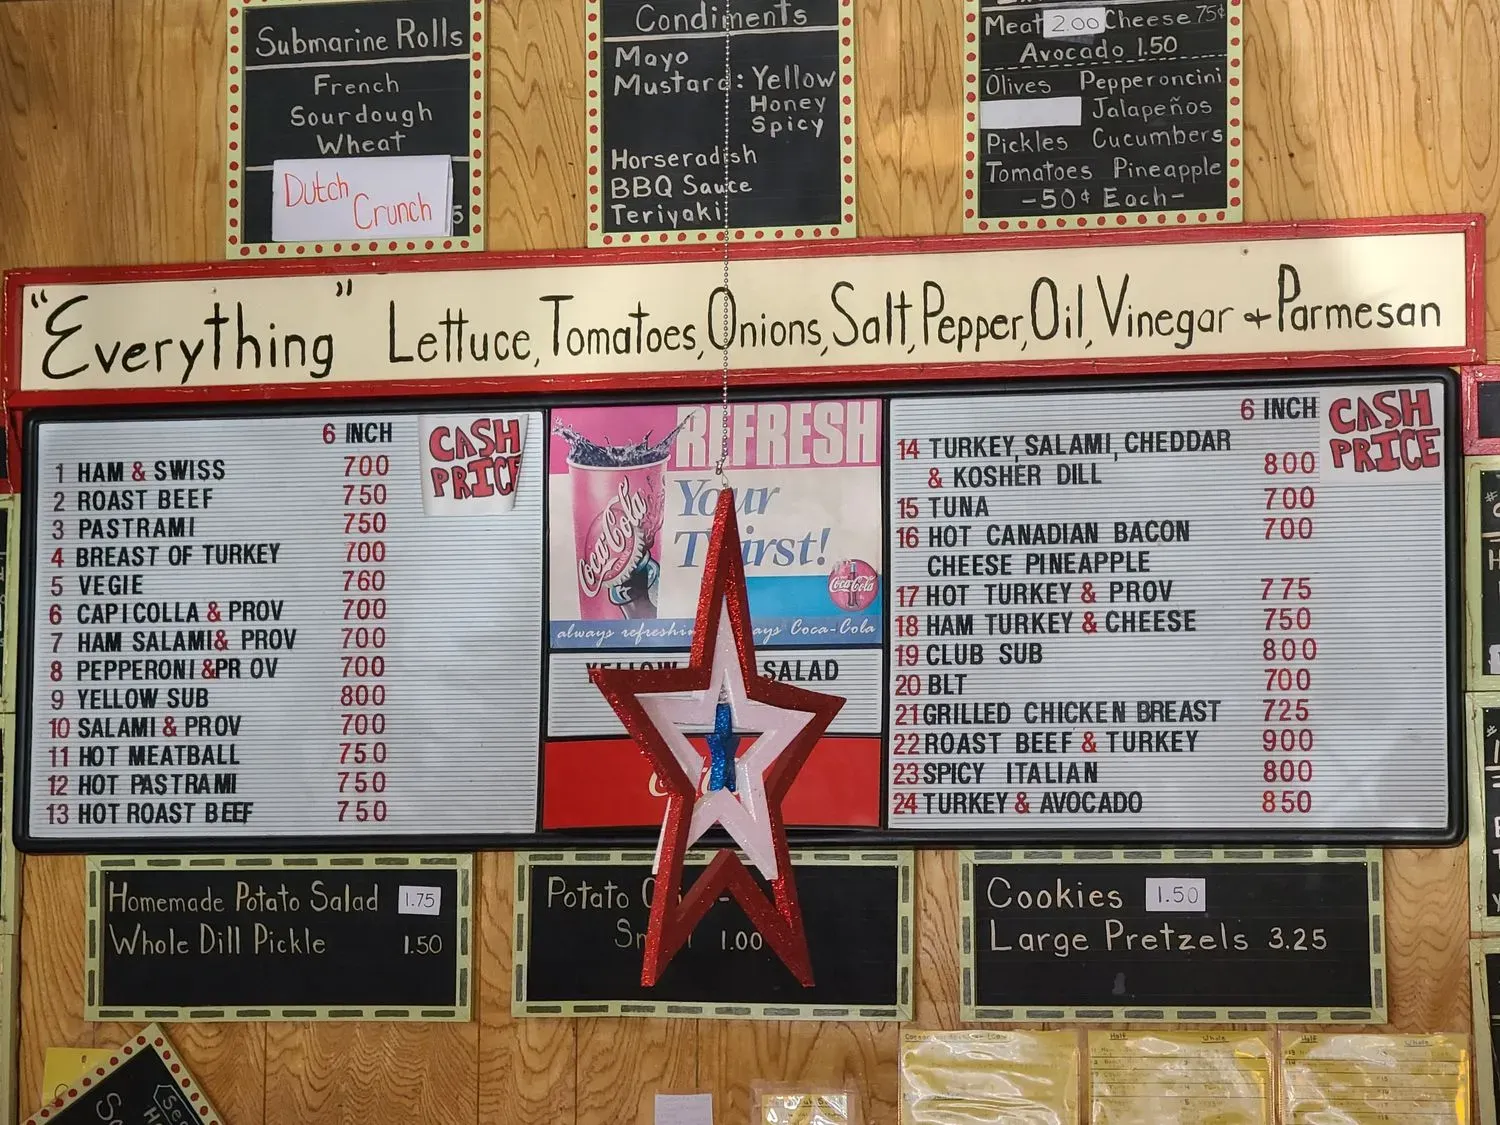 Submarine Rolls
French
Sourdough
Wheat
Dutch
Crunch
5
Condiments
Mayo
Mustard: Yellow
Honey
Spicy
Horseradish
BBQ Sauce
Teriyaki
Meat 2.00 Cheese 75¢
Avocado 1.50
Olives Pepperoncini
Jalapeños
Pickles Cucumbers
Tomatoes Pineapple
-50¢ Each-
"Everything" Lettuce, Tomatoes, Onions, Salt, Pepper, Oil, Vinegar & Parmesan
6 INCH
CASH
PRICE
1 HAM & SWISS 700
2 ROAST BEEF 750
3 PASTRAMI 750
4 BREAST OF TURKEY 700
5 VEGIE 760
6 CAPICOLLA & PROV 700
7 HAM SALAMI& PROV 700
8 PEPPERONI &PR OV 700
9 YELLOW SUB 800
10 SALAMI & PROV 700
11 HOT MEATBALL 750
12 HOT PASTRAMI 750
13 HOT ROAST BEEF 750
REFRESH
Your
Thirst!
Coca-Cola
Coca-Cola
always Coca-Cola
YELLOW SALAD
6 INCH
CASH
PRICE
14 TURKEY, SALAMI, CHEDDAR
& KOSHER DILL 800
15 TUNA 700
16 HOT CANADIAN BACON 700
CHEESE PINEAPPLE
17 HOT TURKEY & PROV 775
18 HAM TURKEY & CHEESE 750
19 CLUB SUB 800
20 BLT 700
21 GRILLED CHICKEN BREAST 725
22 ROAST BEEF & TURKEY 900
23 SPICY ITALIAN 800
24 TURKEY & AVOCADO 850
Homemade Potato Salad 1.75
Whole Dill Pickle 1.50
Potato
1.00
Cookies 1.50
Large Pretzels 3.25
Half Whole
Half Whole